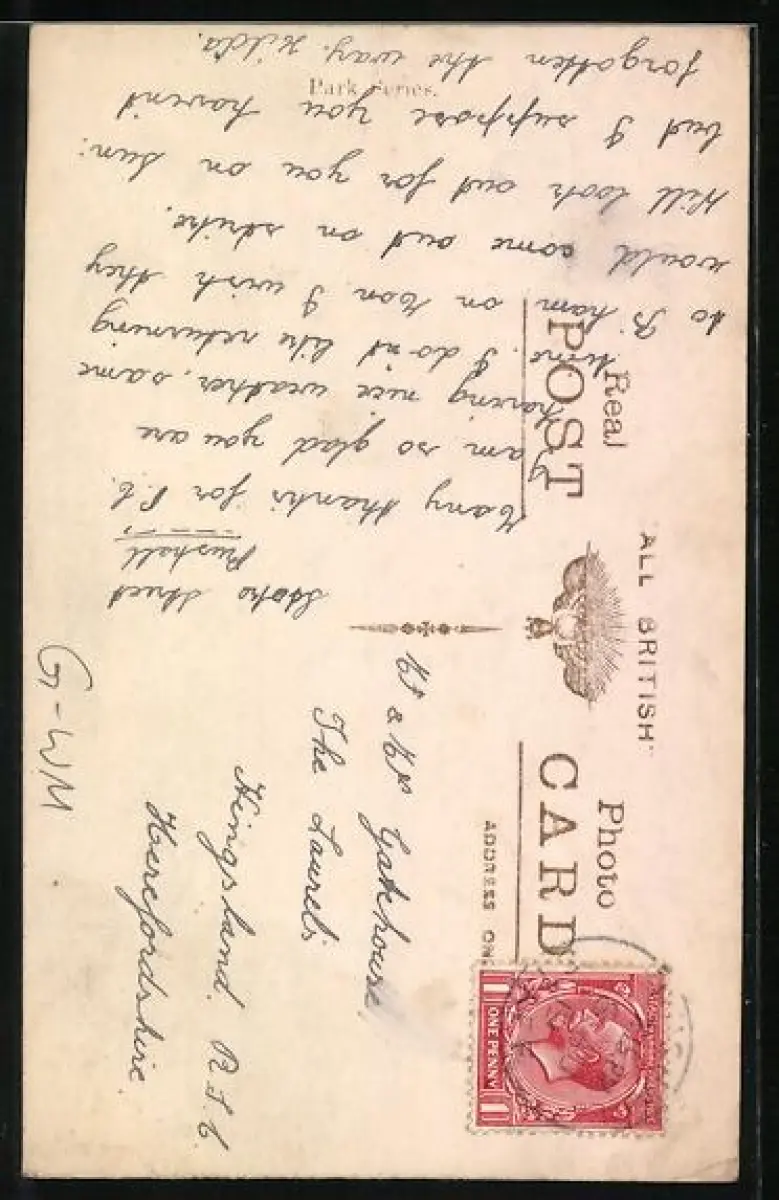 Real Photo
POST CARD
"ALL BRITISH"
ADDRESS ON
Park Series.
ONE PENNY
1 1
Street
Rushall
Many thanks for P.C.
I am so glad you are
having nice weather, same
here. I don't like returning
to B'ham on Mon I wish they
would come out on strike.
Will look out for you on Sun:
but I suppose you havent
forgotten the way. Hilda.
Mr & Mrs Gatehouse
The Laurels
Kingsland. R.S.O.
Herefordshire.
G-WM